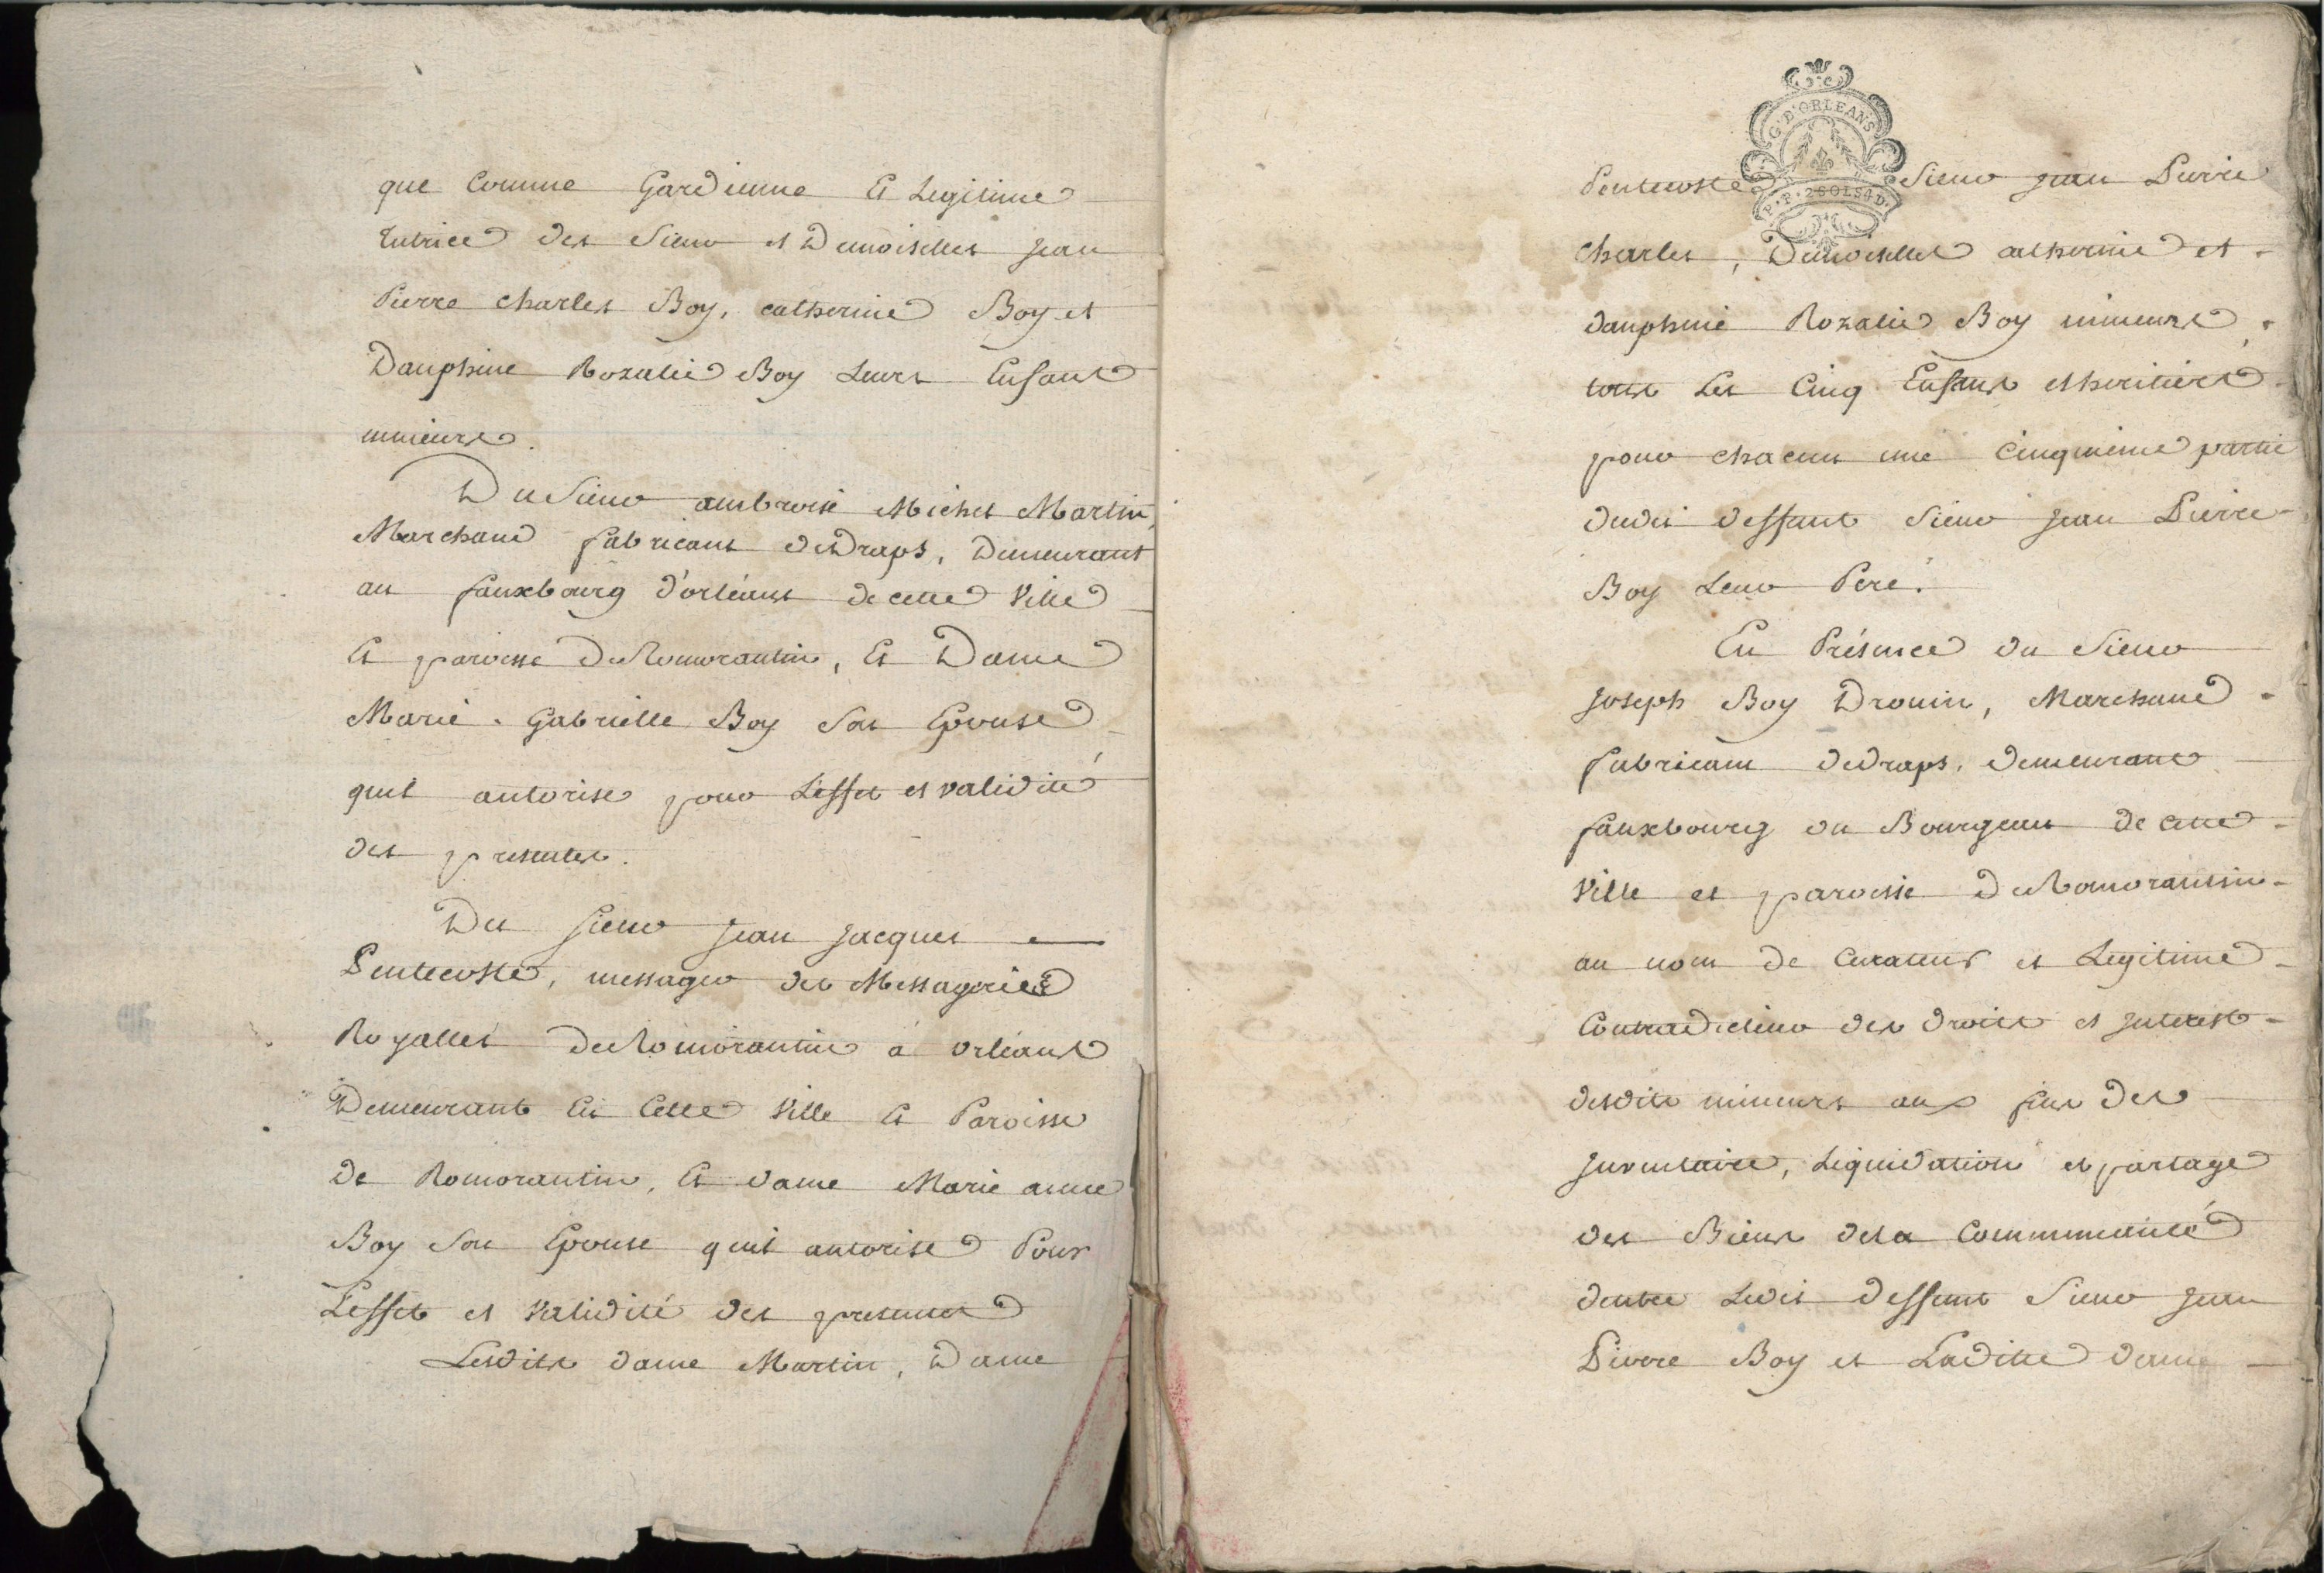 que Comme Gardienne Et Legitime
tutrice des Sieur et Demoiselles jean
Pierre charles Boy, catherine Boy et
Dauphine Rozalie Boy Leurs Enfans
mineurs.
Du Sieur ambroise Michel Martin,
Marchand fabricant de Draps, Demeurant
au fauxbourg d'orléans de cette Ville
Et paroisse De Romorantin, Et Dame
Marie-Gabrielle Boy Son Epouse
quil autorise pour L'effet et validité
des presentes.
Du Sieur jean jacques
Pentecoste, messager des Messageries
Royalles De Romorantin à orléans
Demeurant En Cette Ville Et Paroisse
De Romorantin, Et dame Marie anne
Boy Son Epouse quil autorise Pour
L'effet et Validité des presentes
Lesdites dame Martin, Dame
G. D'ORLEANS
Pentecoste Sieur jean Pierre
P. P. 2 SOLS 4 D.
charles, Demoiselles catherine et
dauphine Rozalie Boy mineurs,
tous Les Cinq Enfans et heritiers
pour chacun une Cinquieme partie
dudit deffunt Sieur jean Pierre
Boy Leur Pere.
En Présence du Sieur
joseph Boy Drouin, Marchand
fabricant de draps, demeurant
fauxbourg du Bourgeau de cette
Ville et paroisse De Romorantin
au nom de Curateur et Legitime
Contradicteur des droits et jnterest
desdits mineurs aux fins des
jnventaire, Liquidation et partage
des Biens de la Communauté
d'entre Ledit deffunt Sieur jean
Pierre Boy et Laditte dame